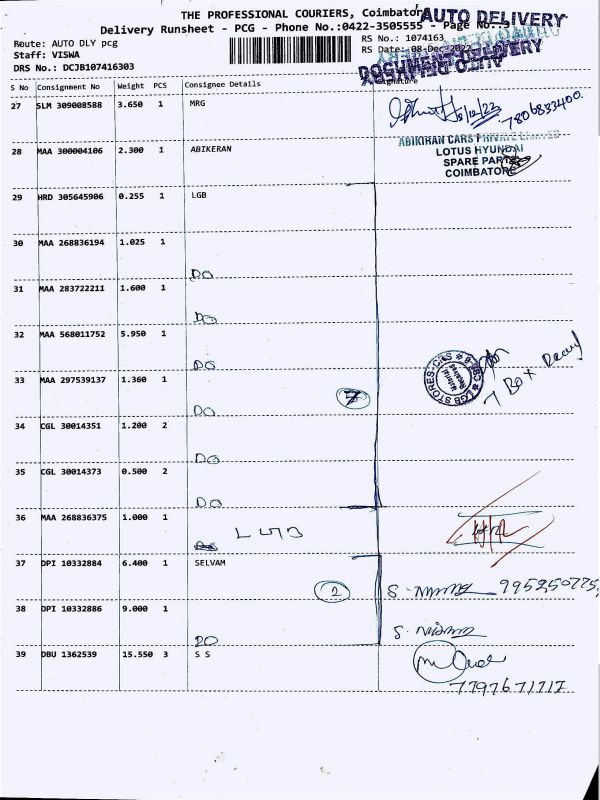 THE PROFESSIONAL COURIERS, Coimbator
AUTO DELIVERY
Delivery Runsheet - PCG - Phone No.:0422-3505555 - Page No.:3
Route: AUTO DLY pcg
RS No.: 1074163
Staff: VISWA
RS Date: 08-Dec-2022
DRS No.: DCJB107416303
AUTO DELIVERY
S No Consignment No Weight PCS Consignee Details Signature
27 SLM 309008588 3.650 1 MRG
7806832400
28 MAA 300004106 2.300 1 ABIKERAN
ABIKIRAN CARS PRIVATE LIMITED
LOTUS HYUNDAI
SPARE PARTS
COIMBATORE
29 HRD 305645906 0.255 1 LGB
30 MAA 268836194 1.025 1
DO
31 MAA 283722211 1.600 1
DO
32 MAA 568011752 5.950 1
DO
LGB STORES-CJS
Material
Received
7 Box
33 MAA 297539137 1.360 1
DO
7
34 CGL 30014351 1.200 2
DO
35 CGL 30014373 0.500 2
DO
36 MAA 268836375 1.000 1
37 DPI 10332884 6.400 1 SELVAM
2
38 DPI 10332886 9.000 1
DO
39 DBU 1362539 15.550 3 S S